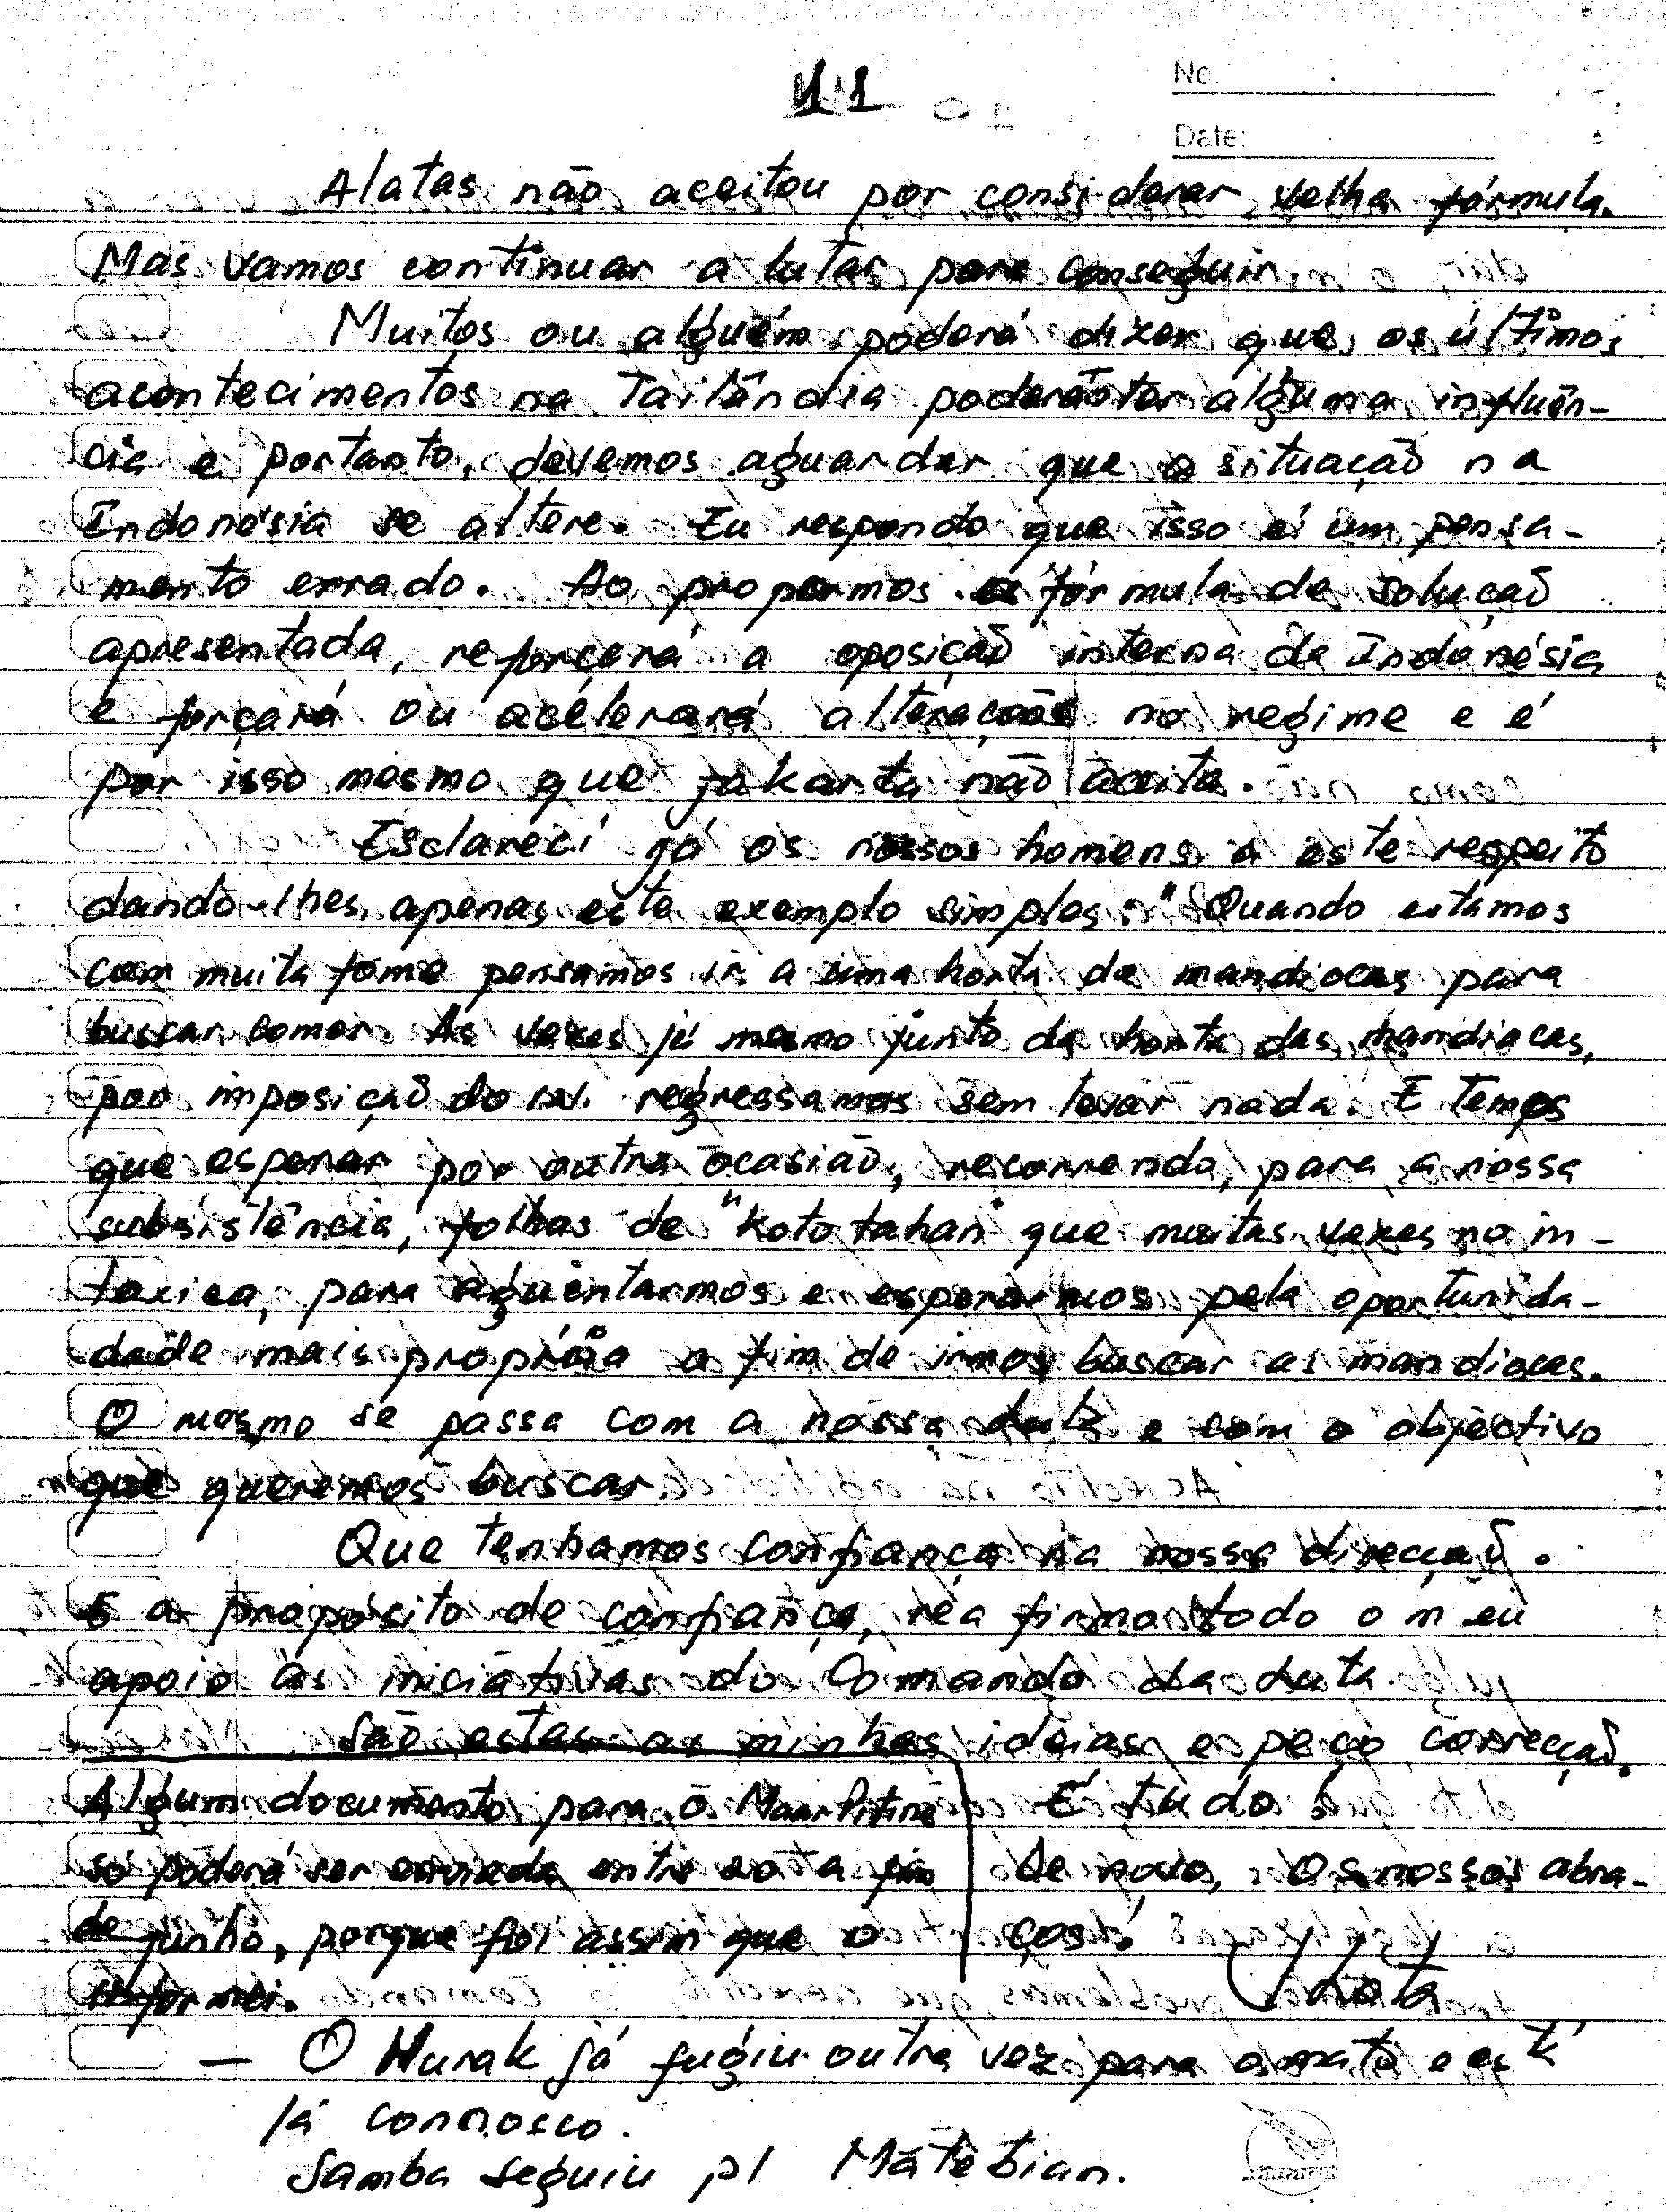 11
No.
Date:
Alatas não aceitou por considerar velha fórmula.
Mas vamos continuar a lutar para conseguir.
Muitos ou alguém poderá dizer que os últimos
acontecimentos na Tailândia poderão ter alguma influên-
cia e portanto, devemos aguardar que a situação na
Indonésia se altere. Eu respondo que isso é um pensa-
mento errado. Ao propormos a fórmula de solução
apresentada, reforçará a oposição interna da Indonésia
e forçará ou acelerará alterações no regime e é
por isso mesmo que Jakarta não aceita.
Esclareci já os nossos homens a este respeito
dando-lhes apenas este exemplo simples: "Quando estamos
com muita fome pensamos ir a uma horta de mandiocas para
buscar comer. Às vezes já mesmo junto da horta das mandiocas,
por imposição do in. regressamos sem levar nada. E temos
que esperar por outra ocasião, recorrendo, para a nossa
subsistência, folhas de "koto tahan" que muitas vezes no in-
toxica, para aguentarmos e esperarmos pela oportunida-
dade mais própria a fim de irmos buscar as mandiocas.
O mesmo se passa com a nossa luta e com o objectivo
que queremos buscar.
Que tenhamos confiança na nossa direcção.
E a propósito de confiança, reafirmo todo o meu
apoio às iniciativas do Comando da Luta.
São estas as minhas ideias e peço correcção.
Algum documento para o Maar Pitine
só poderá ser enviado entre 20 a fim
de junho, porque foi assim que o
informei.
É tudo!
De novo, os nossos abra-
ços!
— O Hurak já fugiu outra vez para o mato e está
lá connosco.
Samba seguiu p/ Matebian.